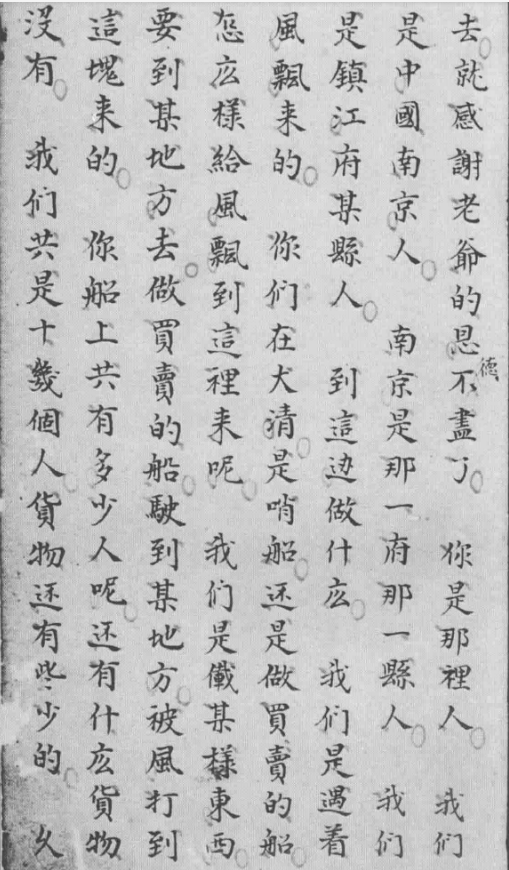 去就感謝老爺的恩德不盡了 你是那裡人 我们
是中國南京人 南京是那一府那一縣人 我们
是鎮江府某縣人 到這边做什庅 我们是遇着
風飄来的 你们在大清是哨船还是做買賣的船
怎庅様給風飄到這裡来呢 我们是儎某様東西
要到某地方去做買賣的船駛到某地方被風打到
這塊来的 你船上共有多少人呢还有什庅貨物
没有 我们共是十幾個人貨物还有些少的 久